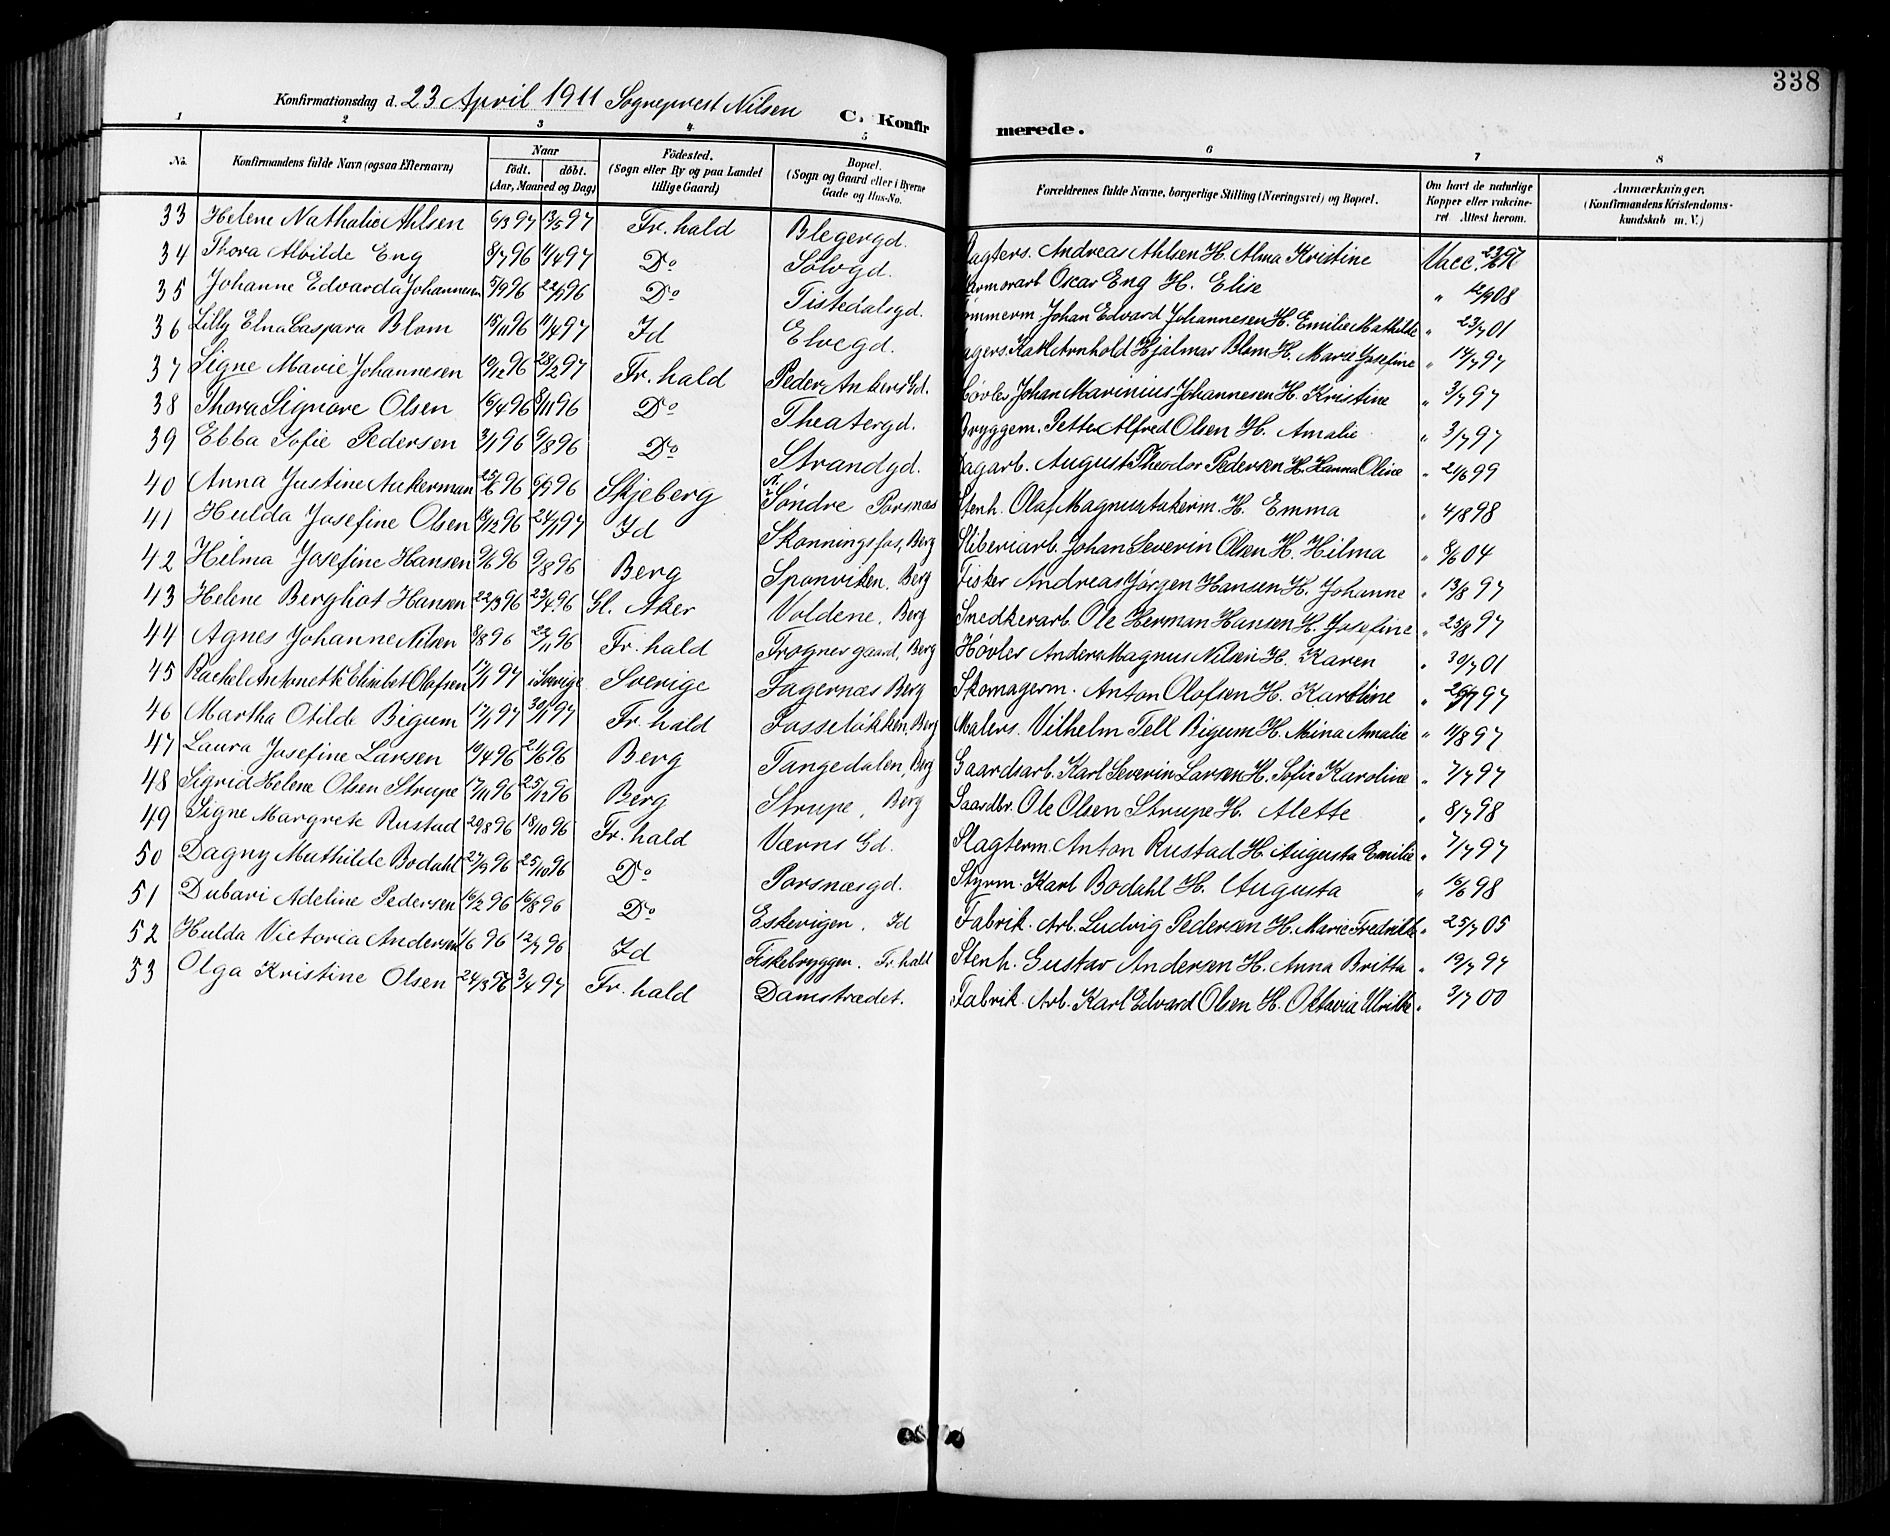 338
Konfirmationsdag d. 23 April 1911 Sogneprest Nilsen
C. Konfirmerede.
1 2 3 4 5 6 7 8
No. Konfirmandens fulde Navn (ogsaa Efternavn) Naar födt. döbt. (Aar, Maaned og Dag) Födested. (Sogn eller By og paa Landet tillige Gaard) Bopæl. (Sogn og Gaard eller i Byerne Gade og Hus-No. Forældrenes fulde Navne, borgerlige Stilling (Næringsvei) og Bopæl. Om havt de naturlige Kopper eller vakcineret. Attest herom. Anmærkninger. (Konfirmandens Kristendomskundskab m. V.)
33 Helene Nathalie Ahlsen 6/3 97 13/5 97 Fr. hald Blegergd. Andreas Ahlsen H. Alma Kristine Vacc.
34 Thora Alvilde Eng 8/7 96 11/4 97 Do Sølvgd. Oscar Eng H. Elise " 12/9 08
35 Johanne Edvarda Johannesen 5/9 96 22/11 96 Do Tistedalsgd. Johan Edvard Johannesen H. Emilie Mathilde " 23/7 01
36 Lilly Elna Caspara Blom 15/11 96 11/4 97 Id Elvegd. Karl Arnhold Hjalmar Blom H. Marie Josefine " 14/7 97
37 Signe Marie Johannesen 10/12 96 28/2 97 Fr. hald Peder Ankers Gd. Høvler Johan Marinius Johannesen H. Kristine " 3/7 97
38 Thora Signore Olsen 16/4 96 8/11 96 Do Theatergd. Bryggem. Petter Alfred Olsen H. Amalie " 3/7 97
39 Ebba Sofie Pedersen 3/1 96 9/8 96 Do Strandgd. Dagarb. August Theodor Pedersen H. Hanna Oline " 21/6 99
40 Anna Justine Aakerman 25/6 96 6/9 96 Skjeberg Søndre Porsnæs Stenh. Olaf Magnus Aakerm. H. Emma " 4/8 98
41 Hulda Josefine Olsen 14/12 96 24/1 97 Id Skonningsfos, Berg Sliberiarb. Johan Severin Olsen H. Hilma " 8/6 04
42 Hilma Josefine Hansen 9/6 96 9/8 96 Berg Sponviken. Berg Fisker Andreas Jørgen Hansen H. Johanne " 13/8 97
43 Helene Berghot Hansen 22/3 96 23/4 96 Gl. Aker Voldene, Berg Snedkerarb. Ole Herman Hansen H. Josefine " 25/8 97
44 Agnes Johanne Nilsen 8/8 96 22/11 96 Fr. hald Frognergaard, Berg Høvler Anders Magnus Nilsen H. Karen " 30/7 01
45 Rachel Antonette Elisabet Olofsen 17/1 97 i Sverige Sverige Fagernæs Berg Skomagerm. Anton Olofsen H. Karoline
46 Martha Otilde Bigum 17/1 97 Fr. hald Fosseløkken, Berg Malers. Vilhelm Tell Bigum H. Mina Amalie " 11/8 97
47 Laura Josefine Larsen 10/4 96 21/6 96 Berg Tangedalen, Berg Gaardsarb. Karl Severin Larsen H. Sofie Karoline " 7/7 97
48 Sigrid Helene Olsen Strupe 17/11 96 25/12 96 Berg Strupe, Berg Gaardbr. Ole Olsen Strupe H. Alette " 8/7 98
49 Signe Margrete Rustad 29/8 96 18/10 96 Fr. hald Værns Gd. Slagterm. Anton Rustad H. Augusta Emilie " 7/7 97
50 Dagny Mathilde Bodahl 27/9 96 25/10 96 Do Porsnæsgd. Styrm. Karl Bodahl H. Augusta " 16/6 98
51 Dubari Adeline Pedersen 16/2 96 16/8 96 Do Eskevigen. Id Fabrik. Arb. Ludvig Pedersen H. Marie Fredrikke " 25/7 05
52 Hulda Victoria Andersen 1/6 96 12/7 96 Id Fiskebryggen. Fr. hald Stenh. Gustav Andersen H. Anna Britta " 19/7 97
53 Olga Kristine Olsen 24/3 96 3/4 97 Fr. hald Damstrædet. Fabrik. Arb. Karl Edvard Olsen H. Oktavia Ulrikke " 3/7 00